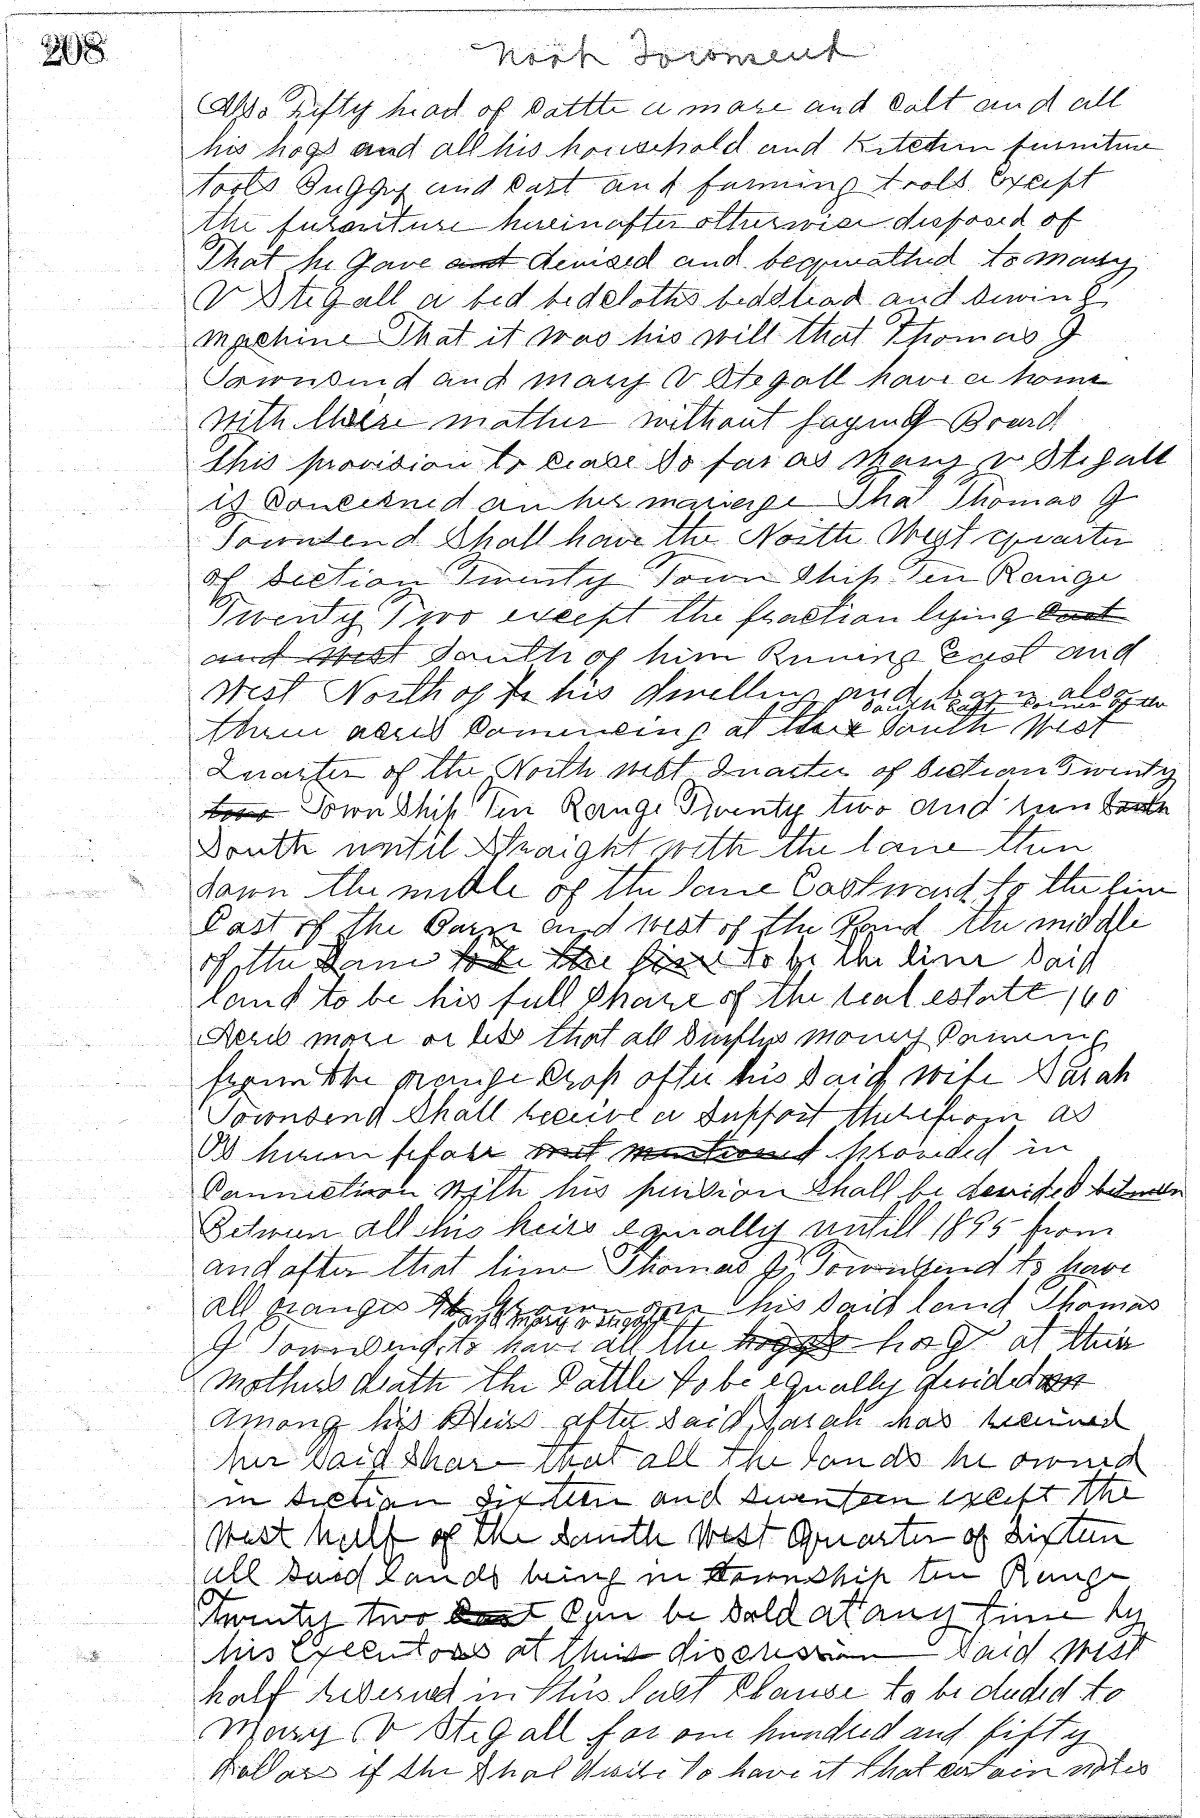 208
Noah Townsend
Also Fifty head of Cattle a mare and Calt and all
his hogs and all his household and Kitchin furniture
tools Buggy and Cart and farming tools Except
the furaniture hereinafter otherwise disposed of
That he gave and devised and bequeathed to Mary
V Stegall a bed bedcloths bedstead and Sewing
machine That it was his will that Thomas J
Townsend and Mary V Stegall have a home
with their mother without paying Board
this provision to cease So far as Mary V Stegall
is Concerned on her mariage That Thomas J
Townsend Shall have the North West quarter
of Section Twenty Town Ship Ten Range
Twenty Two except the fraction lying East
and West South of him Runing East and
West North of his dwelling and barn also
South East Corner of the
three acres Comencing at the South West
Quarter of the North west Quarter of Section Twenty
two Town Ship Ten Range Twenty two and run South
South until Straight with the lane then
down the midle of the lane Eastward to the line
East of the Barn and West of the Pond the middle
of the Lane to be the line to be the line Said
land to be his full Share of the real estate 160
Acres more or less that all Surplus money Coming
from the orange Crop after his Said wife Sarah
Townsend Shall receive a Support therefrom as
is herein before mentioned provided in
Connection with his pension Shall be devided between
Between all his heirs equally untill 1895 from
and after that time Thomas J Townsend to have
all oranges grown on his Said land Thomas
and Mary V Stegall
J Townsend to have all the hoggs hogs at their
Mothers death the Cattle to be equally devided
among his Heirs after Said Sarah has received
her Said Share that all the lands he owned
in Section Sixteen and Seventeen except the
West half of the South West Quarter of Sixteen
all Said lands being in Township ten Range
Twenty two East Can be Sold at any time by
his Executors at their discression Said West
half reserved in this last Clause to be deded to
Mary V Stegall for one hundred and fifty
Dollars if She Shal desire to have it that certain notes